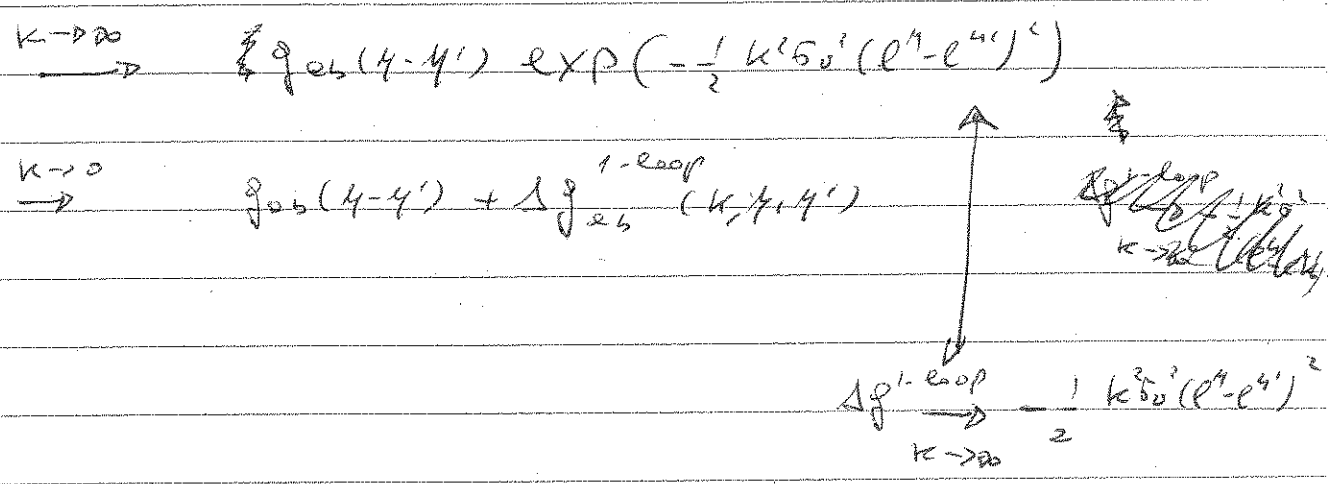 k→∞ g_ab(η-η') exp(-½ k²σ_v²(e^η-e^η')²)
k→0 g_ab(η-η') + Δg_ab^{1-loop}(k,η,η')
Δg^{1-loop} → -½ k²σ_v²(e^η-e^η')²
k→∞